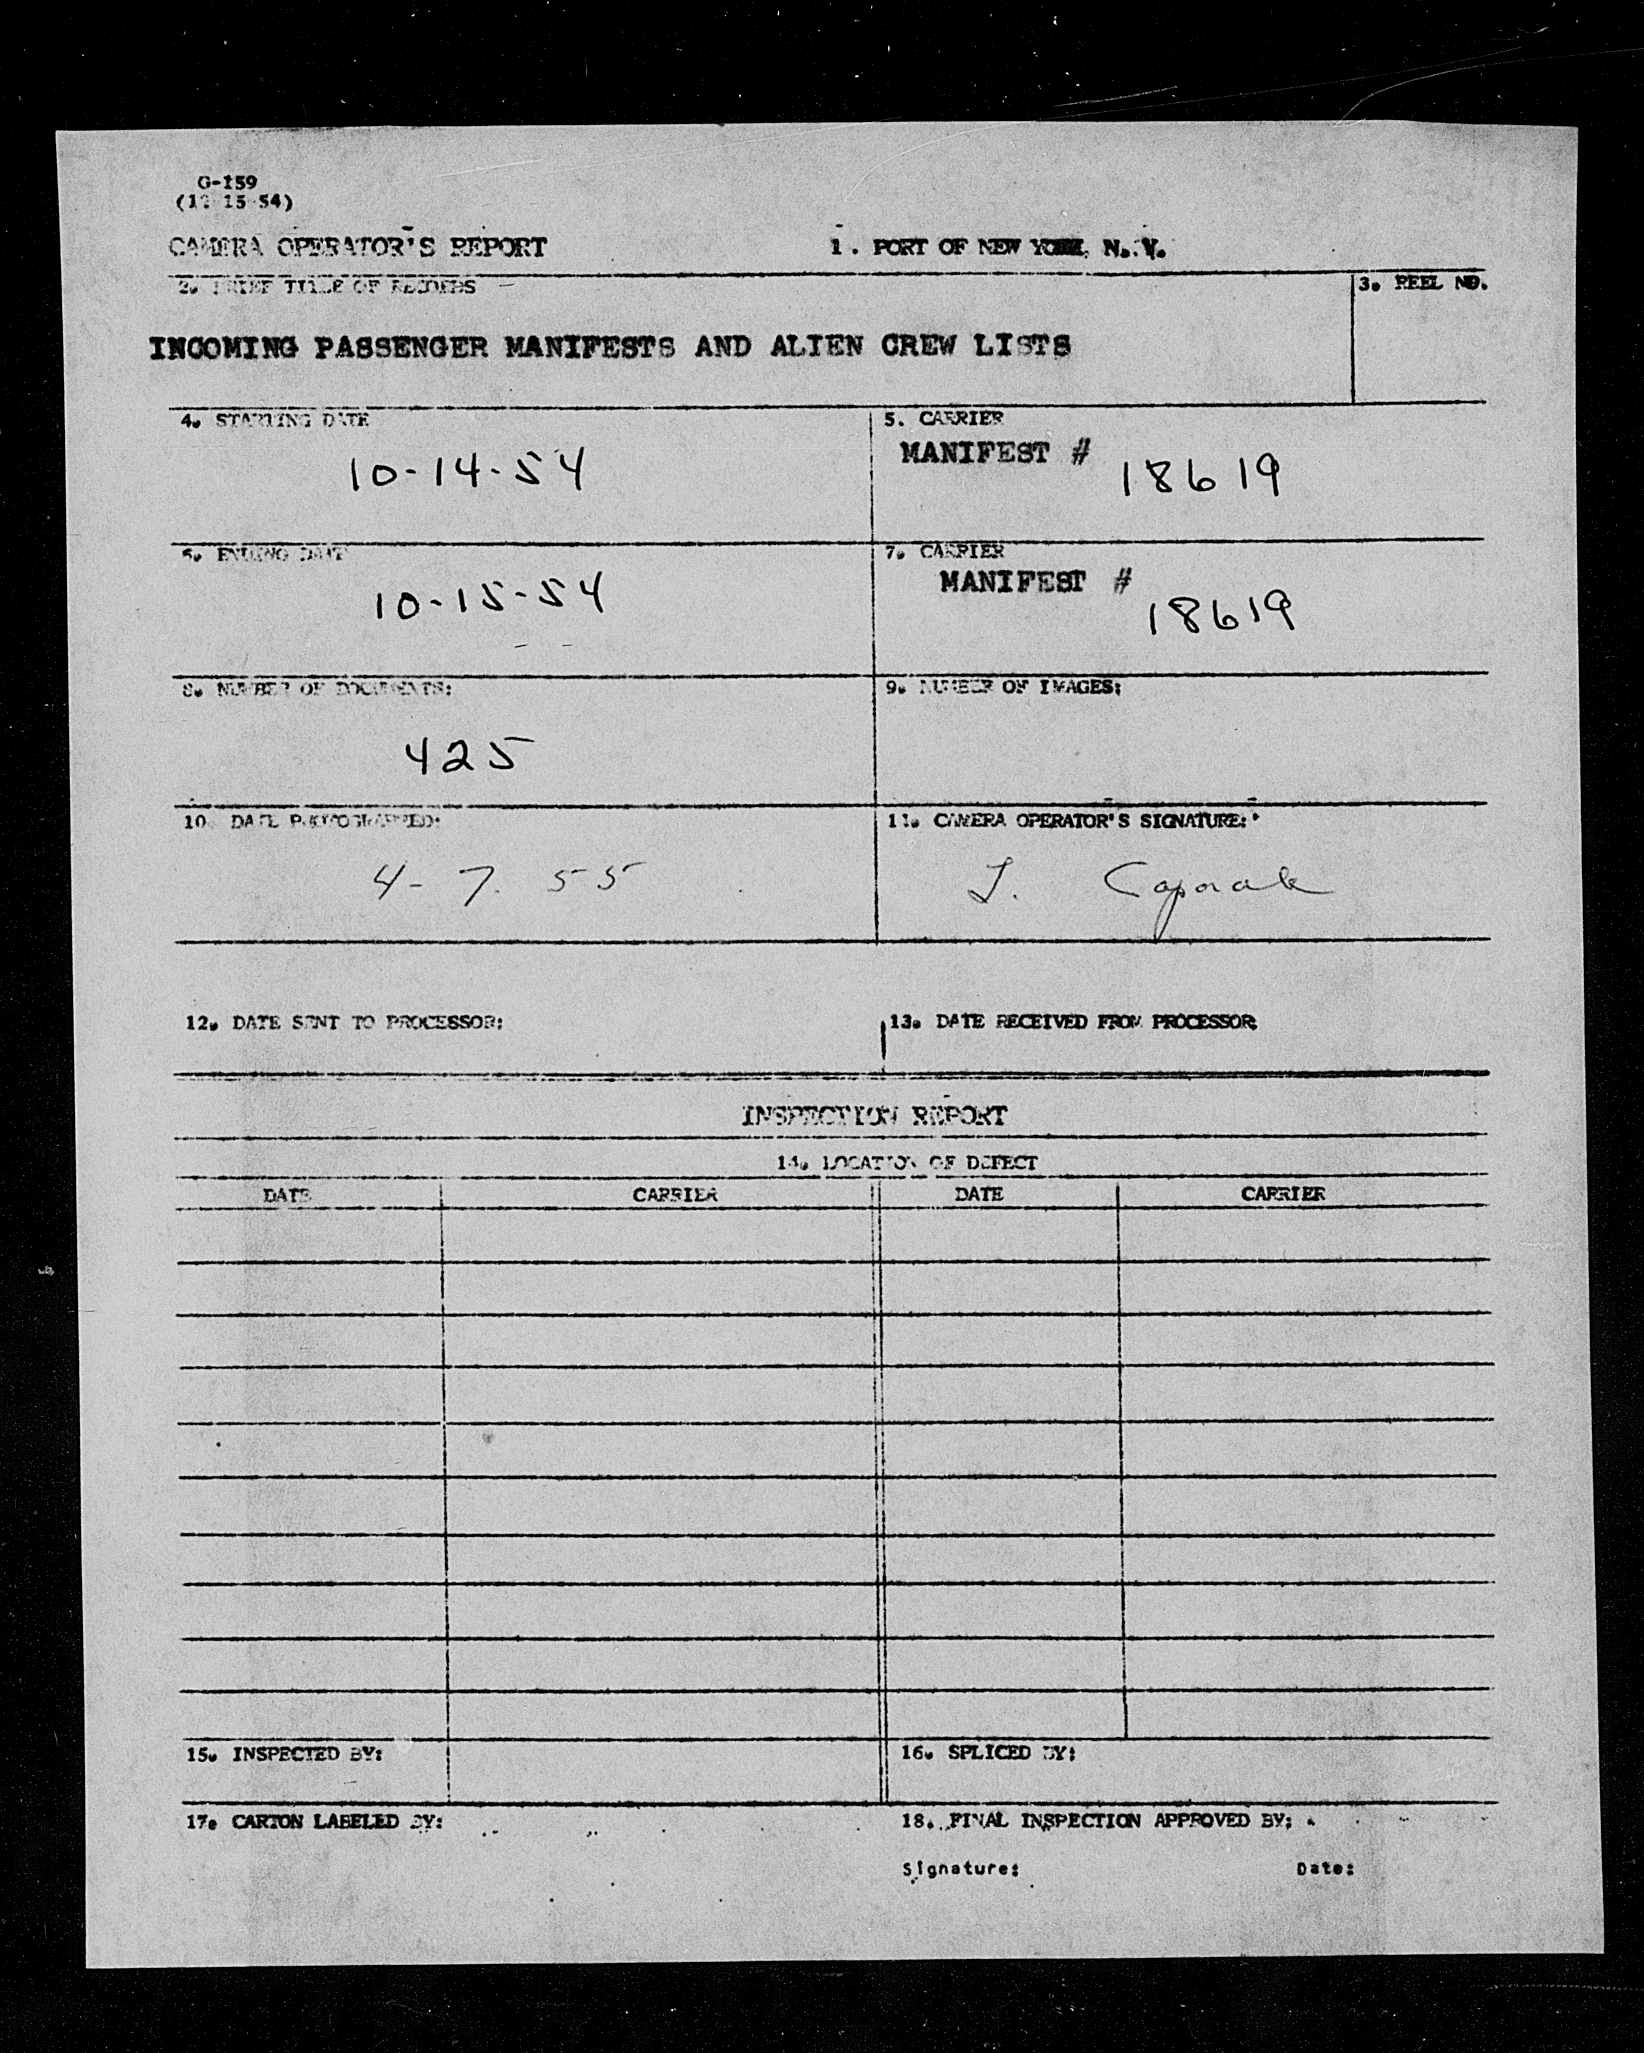 G-159
CAMERA OPERATOR'S REPORT
1. PORT OF NEW YORK, N.Y.
2. BRIEF TITLE OF RECORDS
3. REEL NO.
INCOMING PASSENGER MANIFESTS AND ALIEN CREW LISTS
4. STARTING DATE
10-14-54
5. CARRIER
MANIFEST # 18619
6. ENDING DATE
10-15-54
7. CARRIER
MANIFEST # 18619
8. NUMBER OF DOCUMENTS:
425
9. NUMBER OF IMAGES:
10. DATE PHOTOGRAPHED:
4-7.55
11. CAMERA OPERATOR'S SIGNATURE:
Caporale
12. DATE SENT TO PROCESSOR:
13. DATE RECEIVED FROM PROCESSOR:
INSPECTION REPORT
14. LOCATION OF DEFECT
DATE CARRIER DATE CARRIER
15. INSPECTED BY:
16. SPLICED BY:
17. CARTON LABELED BY:
18. FINAL INSPECTION APPROVED BY:
Signature: Date: